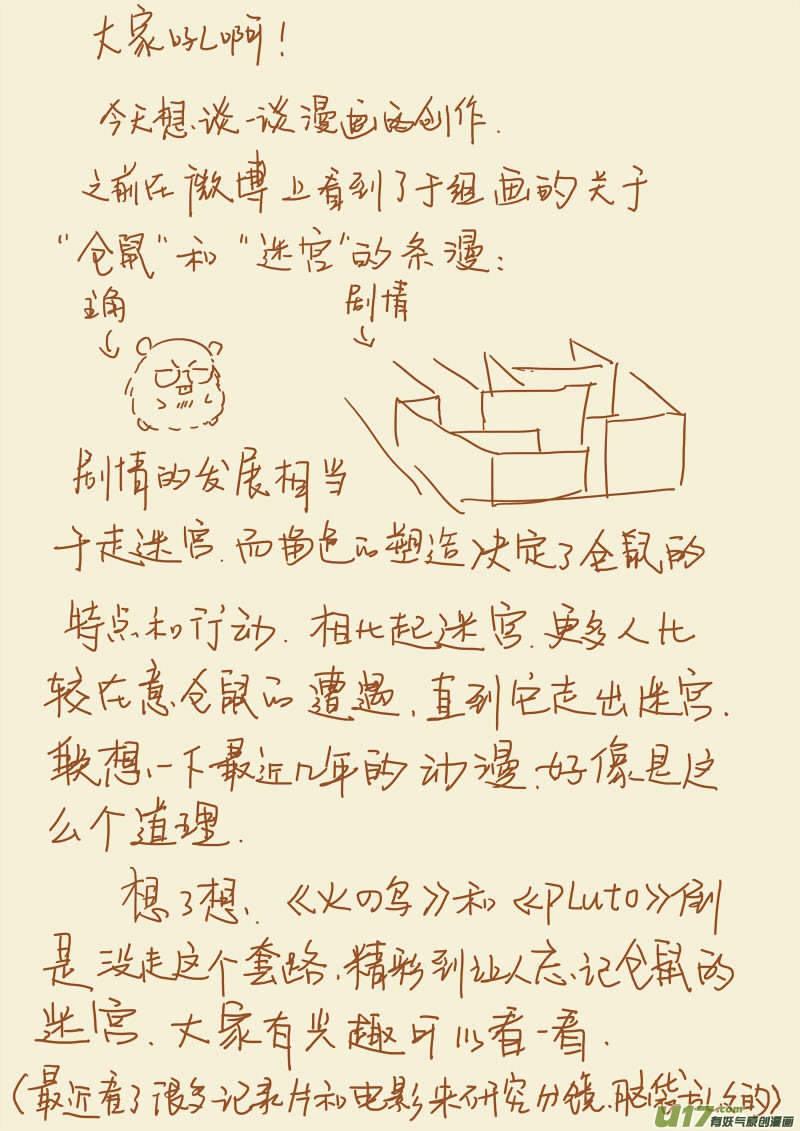 大家好啊！
今天想谈一谈漫画的创作.
之前在微博上看到了于组画的关于
“仓鼠”和“迷宫”的条漫：
主角
剧情
剧情的发展相当
于走迷宫.而角色的塑造决定了仓鼠的
特点和行动.相比起迷宫.更多人比
较在意仓鼠的遭遇,直到它走出迷宫.
联想一下最近几年的动漫.好像是这
么个道理.
想了想.《火の鸟》和《PLuto》倒
是没走这个套路.精彩到让人忘记仓鼠的
迷宫.大家有兴趣可以看一看.
(最近看了很多记录片和电影来研究分镜.脑袋
的)
u17.com
有妖气原创漫画